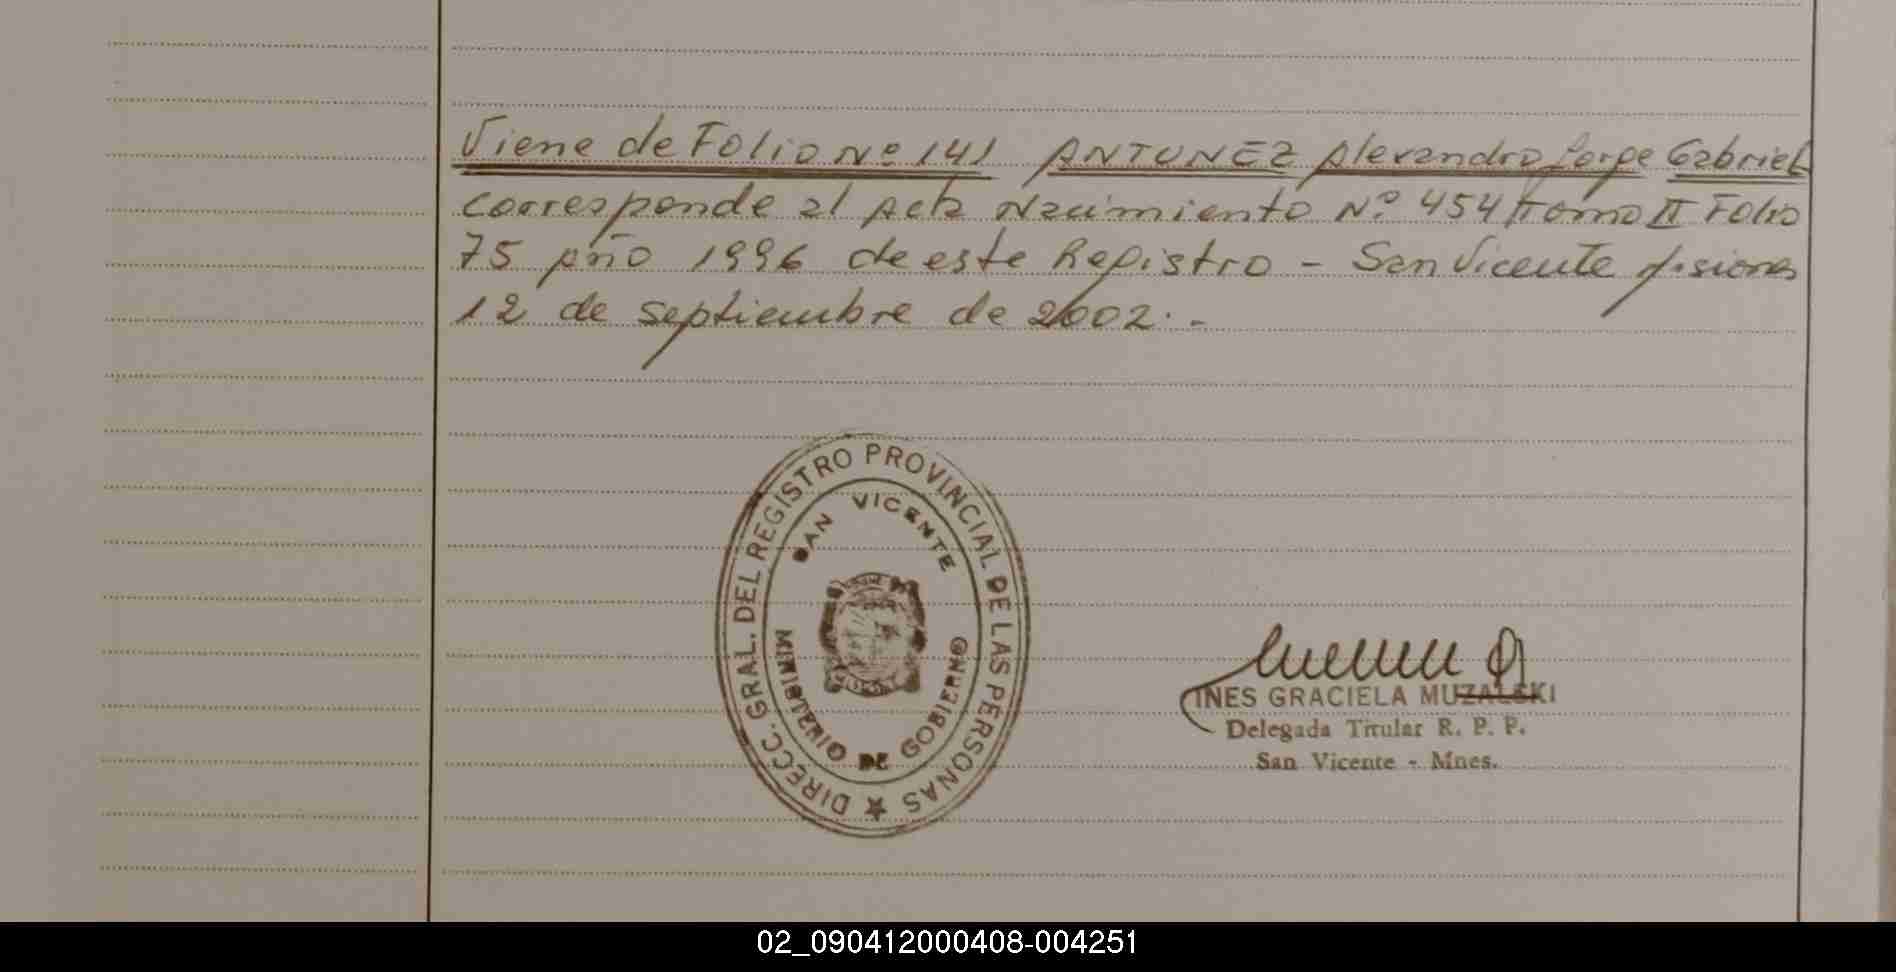 Viene de Folio Nº 141 ANTUNEZ Alexandro Jorge Gabriel
corresponde al Acta Nacimiento Nº 454 Tomo II Folio
75 Año 1996 de este Registro - San Vicente Misiones
12 de septiembre de 2002.-
DIRECC. GRAL. DEL REGISTRO PROVINCIAL DE LAS PERSONAS ★
SAN VICENTE
MINISTERIO DE GOBIERNO
INES GRACIELA MUZALSKI
Delegada Titular R. P. P.
San Vicente - Mnes.
02_090412000408-004251